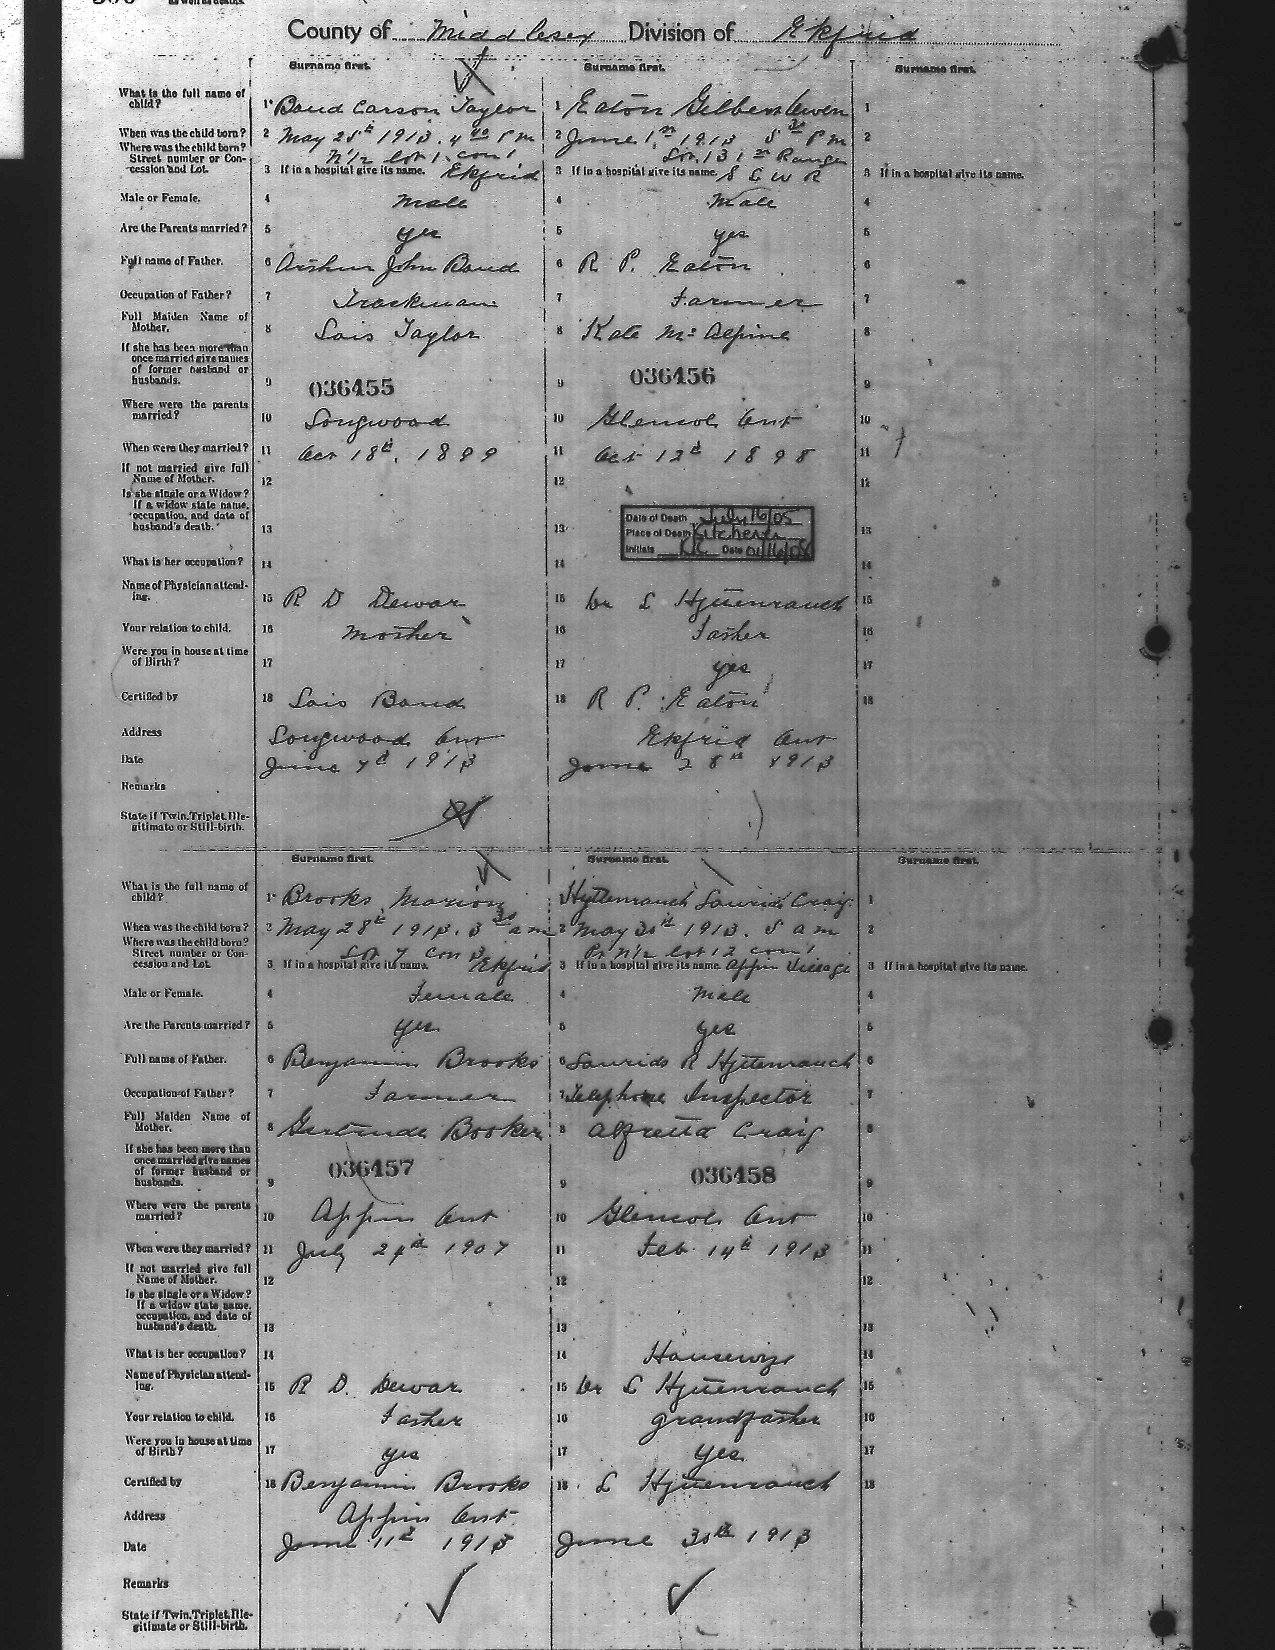 County of Middlesex Division of Ekfrid
Surname first. Surname first. Surname first.
What is the full name of child? 1 Baud Carson Taylor 1 Eaton Gilbert Owen 1
When was the child born? 2 May 25th 1913. 4 30 P m 2 June 1st 1913 8 30 P m 2
Where was the child born? Street number or Concession and Lot. N 1/2 lot 1. con 1 Lot 13 1st Range
3 If in a hospital give its name. Ekfrid 3 If in a hospital give its name. S L W R 3 If in a hospital give its name.
Male or Female. 4 male 4 Male 4
Are the Parents married? 5 yes 5 yes 5
Full name of Father. 6 Arthur John Baud 6 R. P. Eaton 6
Occupation of Father? 7 Trackman 7 Farmer 7
Full Maiden Name of Mother. 8 Lois Taylor 8 Kate Mc Alpine 8
If she has been more than once married give names of former husband or husbands. 9 036455 9 036456 9
Where were the parents married? 10 Longwood 10 Glencoe Ont 10
When were they married? 11 Oct 18th, 1899 11 Oct 12th 1898 11
If not married give full Name of Mother. 12 12 12
Is she single or a Widow? If a widow state name, occupation, and date of husband's death. 13 13 13
Date of Death July 16/05
Place of Death Kitchener
Initials Date
What is her occupation? 14 14 14
Name of Physician attending. 15 R D Dewar 15 Dr L Hyttenrauch 15
Your relation to child. 16 Mother 16 Father 16
Were you in house at time of Birth? 17 17 yes 17
Certified by 18 Lois Baud 18 R P. Eaton 18
Address Longwood Ont Ekfrid Ont
Date June 7th 1913 June 28th 1913
Remarks
State if Twin, Triplet, Illegitimate or Still-birth.
Surname first. Surname first. Surname first.
What is the full name of child? 1 Brooks, Marion 1 Hyttenrauch Laurids Craig 1
When was the child born? 2 May 28th 1913. 3 30 a m 2 May 30th 1913. 8 a m 2
Where was the child born? Street number or Concession and Lot. Lot 7 con 3 Pt N 1/2 lot 12 con 1
3 If in a hospital give its name. Ekfrid 3 If in a hospital give its name. Appin Village 3 If in a hospital give its name.
Male or Female. 4 Female 4 Male 4
Are the Parents married? 5 yes 5 yes 5
Full name of Father. 6 Benjamin Brooks 6 Laurids R Hyttenrauch 6
Occupation of Father? 7 Farmer 7 Telephone Inspector 7
Full Maiden Name of Mother. 8 Gertrude Booker 8 Alfretta Craig 8
If she has been more than once married give names of former husband or husbands. 9 036457 9 036458 9
Where were the parents married? 10 Appin Ont 10 Glencoe Ont 10
When were they married? 11 July 24th 1907 11 Feb. 14th 1913 11
If not married give full Name of Mother. 12 12 12
Is she single or a Widow? If a widow state name, occupation, and date of husband's death. 13 13 13
What is her occupation? 14 14 Housewife 14
Name of Physician attending. 15 R D. Dewar 15 Dr L Hyttenrauch 15
Your relation to child. 16 Father 16 grandfather 16
Were you in house at time of Birth? 17 yes 17 yes 17
Certified by 18 Benjamin Brooks 18 L Hyttenrauch 18
Address Appin Ont.
Date June 11th 1913 June 30th 1913
Remarks
State if Twin, Triplet, Illegitimate or Still-birth.